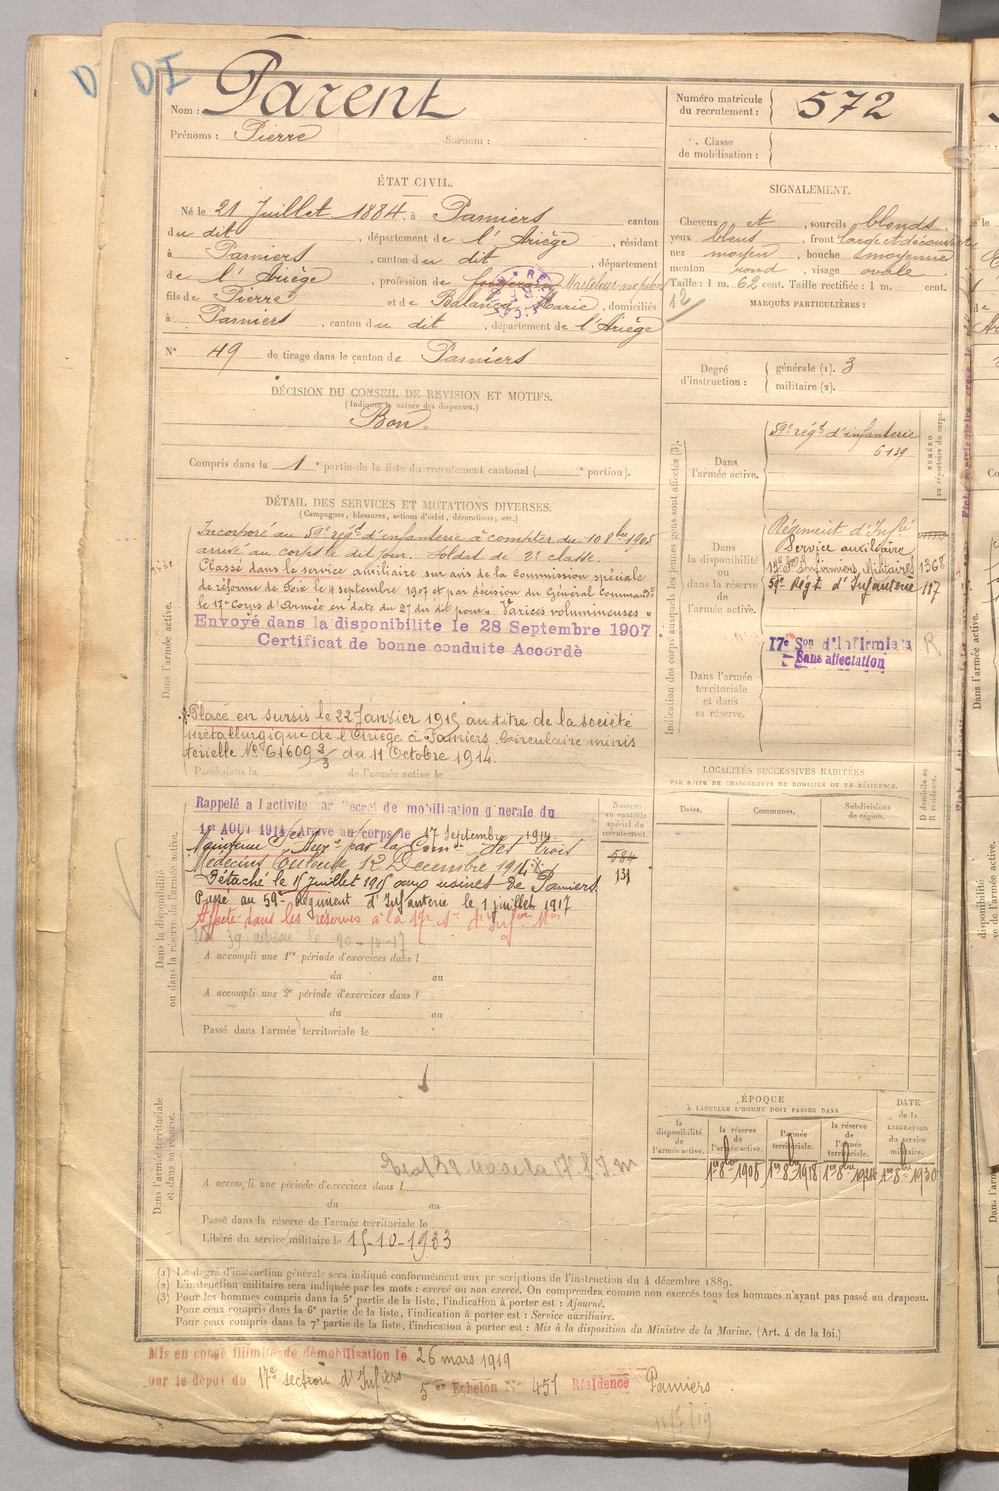 DI
Nom : Parent
Prénoms : Pierre Surnom :
Numéro matricule
du recrutement : 572
Classe
de mobilisation :
ÉTAT CIVIL.
Né le 21 Juillet 1884, à Pamiers canton
du dit, département de l'Ariège, résidant
à Pamiers, canton du dit, département
de l'Ariège, profession de
fils de Pierre et de Marie, domiciliés
à Pamiers, canton du dit, département de l'Ariège
N° 49 de tirage dans le canton de Pamiers
DÉCISION DU CONSEIL DE REVISION ET MOTIFS.
(Indiquer la nature des dispenses.)
Bon
Compris dans la 1e partie de la liste du recrutement cantonal ( e portion).
SIGNALEMENT.
Cheveux et, sourcils blonds
yeux bleus, front large et découvert
nez moyen, bouche moyenne
menton rond, visage ovale
Taille : 1 m. 62 cent. Taille rectifiée : 1 m. cent.
12
MARQUES PARTICULIÈRES :
Degré
d'instruction : générale (1). 3
militaire (2).
DÉTAIL DES SERVICES ET MUTATIONS DIVERSES.
(Campagnes, blessures, actions d'éclat, décorations, etc.)
Dans l'armée active.
Incorporé au 59e régt d'infanterie à compter du 10 8bre 1905
arrivé au corps le dit jour. Soldat de 2e classe.
Classé dans le service auxiliaire sur avis de la Commission spéciale
de réforme de Foix le 4 septembre 1907 et par décision du Général Commandt
le 17e Corps d'Armée en date du 27 du dit pour « Varices volumineuses »
Envoyé dans la disponibilite le 28 Septembre 1907.
Certificat de bonne conduite Accordè
Placé en sursis le 22 Janvier 1915 au titre de la société
métallurgique de l'Ariège à Pamiers. Circulaire minis
térielle No 61609 3/3 du 11 Octobre 1914.
Passé dans la de l'armée active le
Dans la disponibilité
ou dans la réserve de l'armée active.
Rappelé a l activite par Decret de mobilisation générale du
1er AOUT 1914 Arrivé au corps le 17 Septembre 1914.
Maintenu Sce Auxre par la Comon des trois
Médecins Toulouse 12 Decembre 1914
Détaché le 15 Juillet 1915 aux usines de Pamiers
Passé au 59e Régiment d'Infanterie le 1 juillet 1917
Affecté dans les réserves à la 17e Son d'Infers Mres
A accompli une 1re période d'exercices dans l
du au
A accompli une 2e période d'exercices dans l
du au
Passé dans l'armée territoriale le
Numéro
au contrôle
spécial du
recrutement.
584
131
Dans l'armée territoriale
et dans sa réserve.
A accompli une période d'exercices dans l
du au
Passé dans la réserve de l'armée territoriale le
Libéré du service militaire le 15-10-1933
Indication des corps auxquels les jeunes gens sont affectés (3).
NUMÉRO
au répertoire du corps.
Dans
l'armée active.
59e régt d'infanterie
6139
Dans
la disponibilité
ou
dans la réserve
de
l'armée active.
Régiment d'Infie
Service auxiliaire
Son Infirmiers Militaires 1368
59e Régt d'Infanterie 117
Dans l'armée
territoriale
et dans
sa réserve.
17e Son d'Infirmiers R
Sans affectation
LOCALITÉS SUCCESSIVES HABITÉES
PAR SUITE DE CHANGEMENTS DE DOMICILE OU DE RÉSIDENCE.
Dates. Communes. Subdivisions
de région.
D domicile ou
R résidence.
ÉPOQUE
À LAQUELLE L'HOMME DOIT PASSER DANS
DATE
de la
LIBÉRATION
du service
militaire.
la
disponibilité
de
l'armée active.
la réserve
de
l'armée active.
l'armée
territoriale.
la réserve
de
l'armée
territoriale.
1er 8bre 1908 1er 8bre 1918 1er 8bre 1924 1er 8bre 1930
(1) Le degré d'instruction générale sera indiqué conformément aux prescriptions de l'instruction du 4 décembre 1889.
(2) L'instruction militaire sera indiquée par les mots : exercé ou non exercé. On comprendra comme non exercés tous les hommes n'ayant pas passé au drapeau.
(3) Pour les hommes compris dans la 5e partie de la liste, l'indication à porter est : Ajourné.
Pour ceux compris dans la 6e partie de la liste, l'indication à porter est : Service auxiliaire.
Pour ceux compris dans la 7e partie de la liste, l'indication à porter est : Mis à la disposition du Ministre de la Marine. (Art. 4 de la loi.)
Mis en congé illimité de démobilisation le 26 mars 1919
par le dépot du 17e section d'Infiers 5 er Echelon N° 451 Résidence Pamiers.